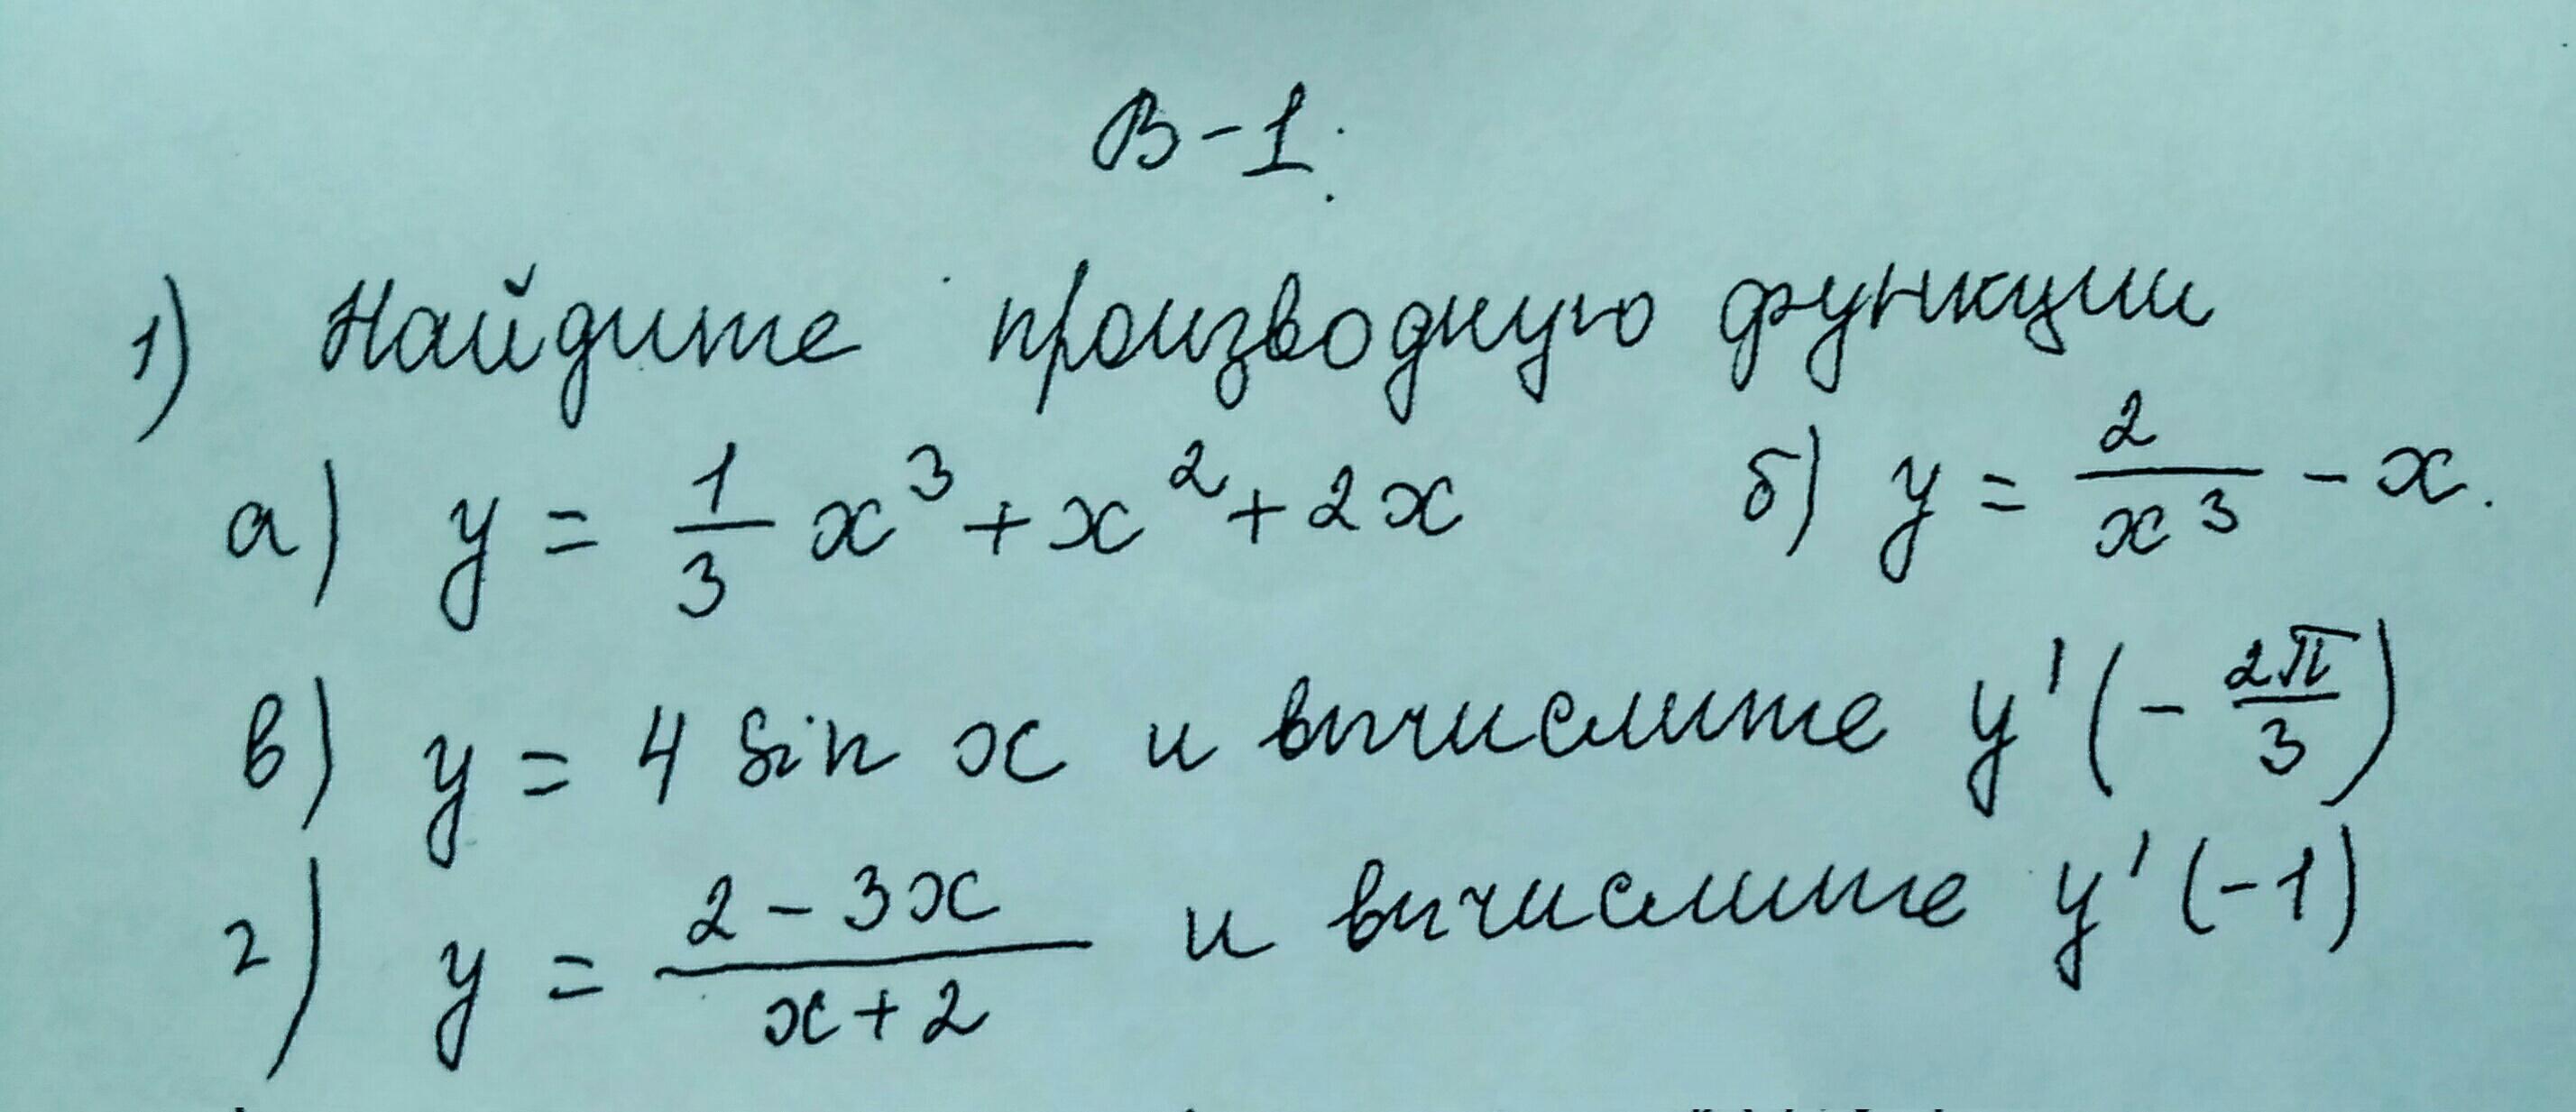 В-1.
1) Найдите производную функции
а) y = 1/3 x³ + x² + 2x б) y = 2/x³ - x.
в) y = 4 sin x и вычислите y'(-2π/3)
г) y = (2 - 3x)/(x + 2) и вычислите y'(-1)